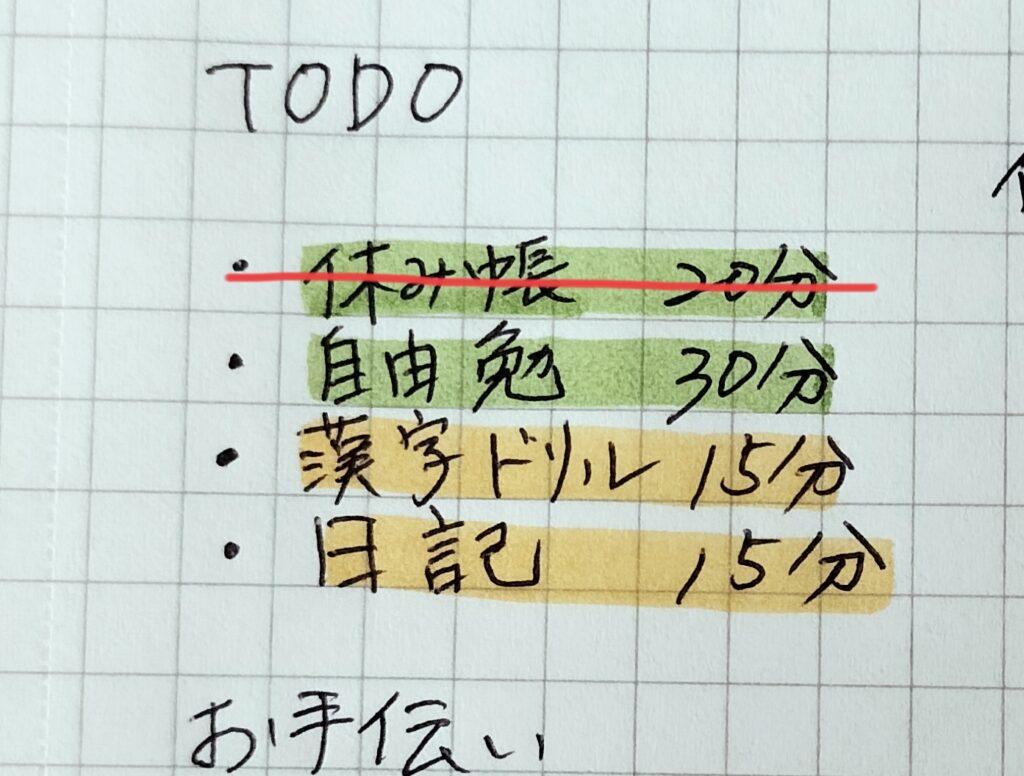 TODO
・休み帳 20分
・自由勉 30分
・漢字ドリル 15分
・日記 15分
お手伝い